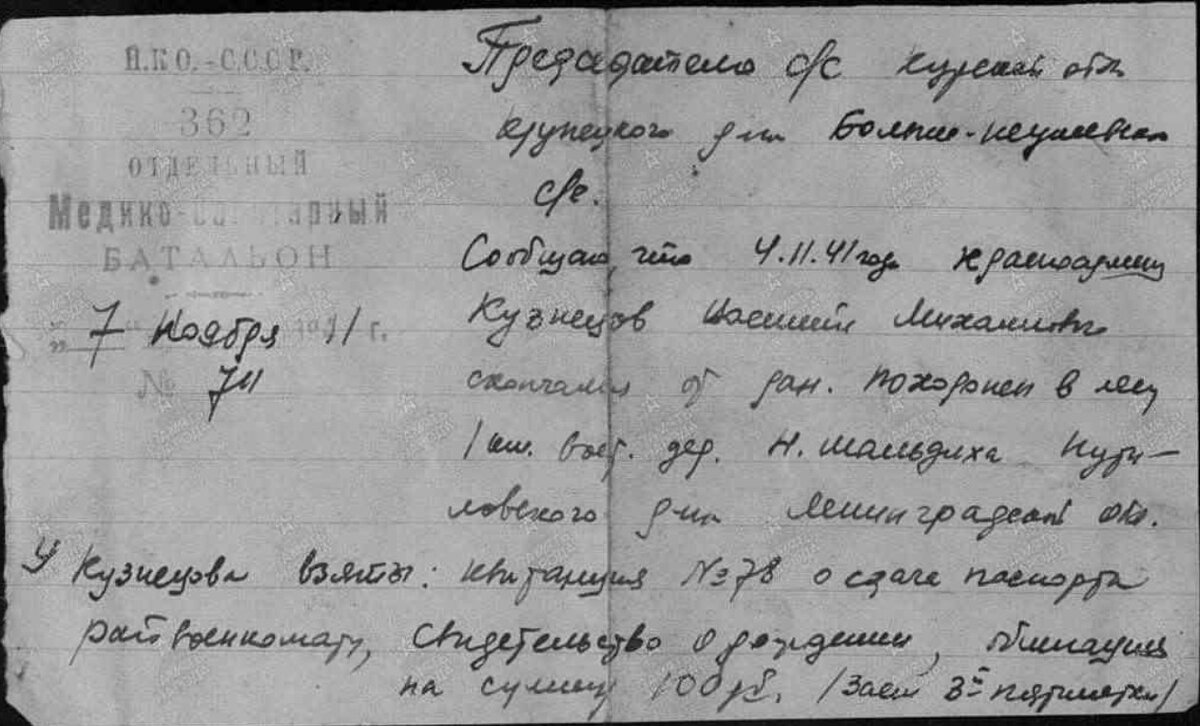 Н.К.О.-С.С.С.Р.
362
ОТДЕЛЬНЫЙ
Медико-Санитарный
БАТАЛЬОН
„7“ Ноября 1941 г.
№ 711
Председателю с/с Курской обл
р-на Больше-
с/с.
Сообщаю, что 4.11.41 года красноармеец
Кузнецов Василий Михайлович
скончался от ран. Похоронен в лесу
1 км. вост. дер. Н. Шальдиха Пути-
ловского р-на Ленинградской обл.
У Кузнецова взяты: квитанция №78 о сдаче паспорта
райвоенкомату, свидетельство о рождении, облигация
на сумму 100 руб. /Заем 3й пятилетки/